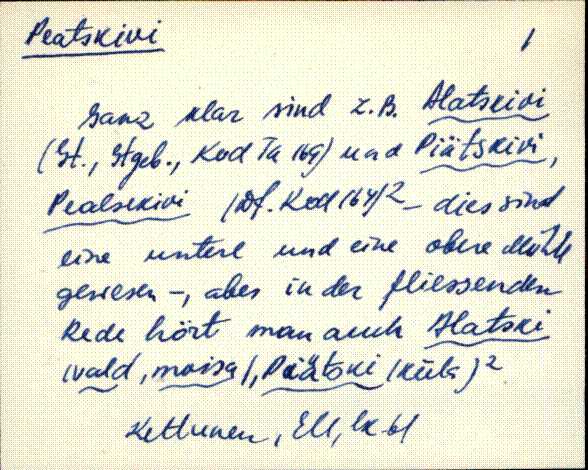 Peatskivi
1
Ganz klar sind z.B. Alatskivi
(St., Stgeb., Kod Ta 169) und Piätskivi,
Pealsekivi (Df. Kod 164)2 – dies sind
eine untere und eine obere Mühle
gewesen –, aber in der fliessenden
Rede hört man auch Alatski
(vald, moisa), Piätski (küla)2
Kettunen, EM, lk 61